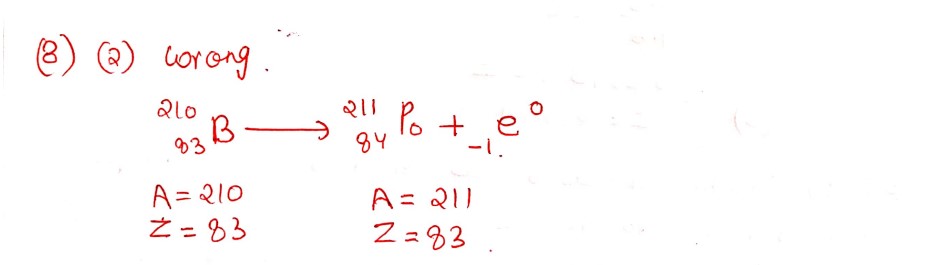 (8) (2) wrong.
²¹⁰₈₃B ⟶ ²¹¹₈₄Po + ₋₁e⁰
A = 210 A = 211
Z = 83 Z = 83